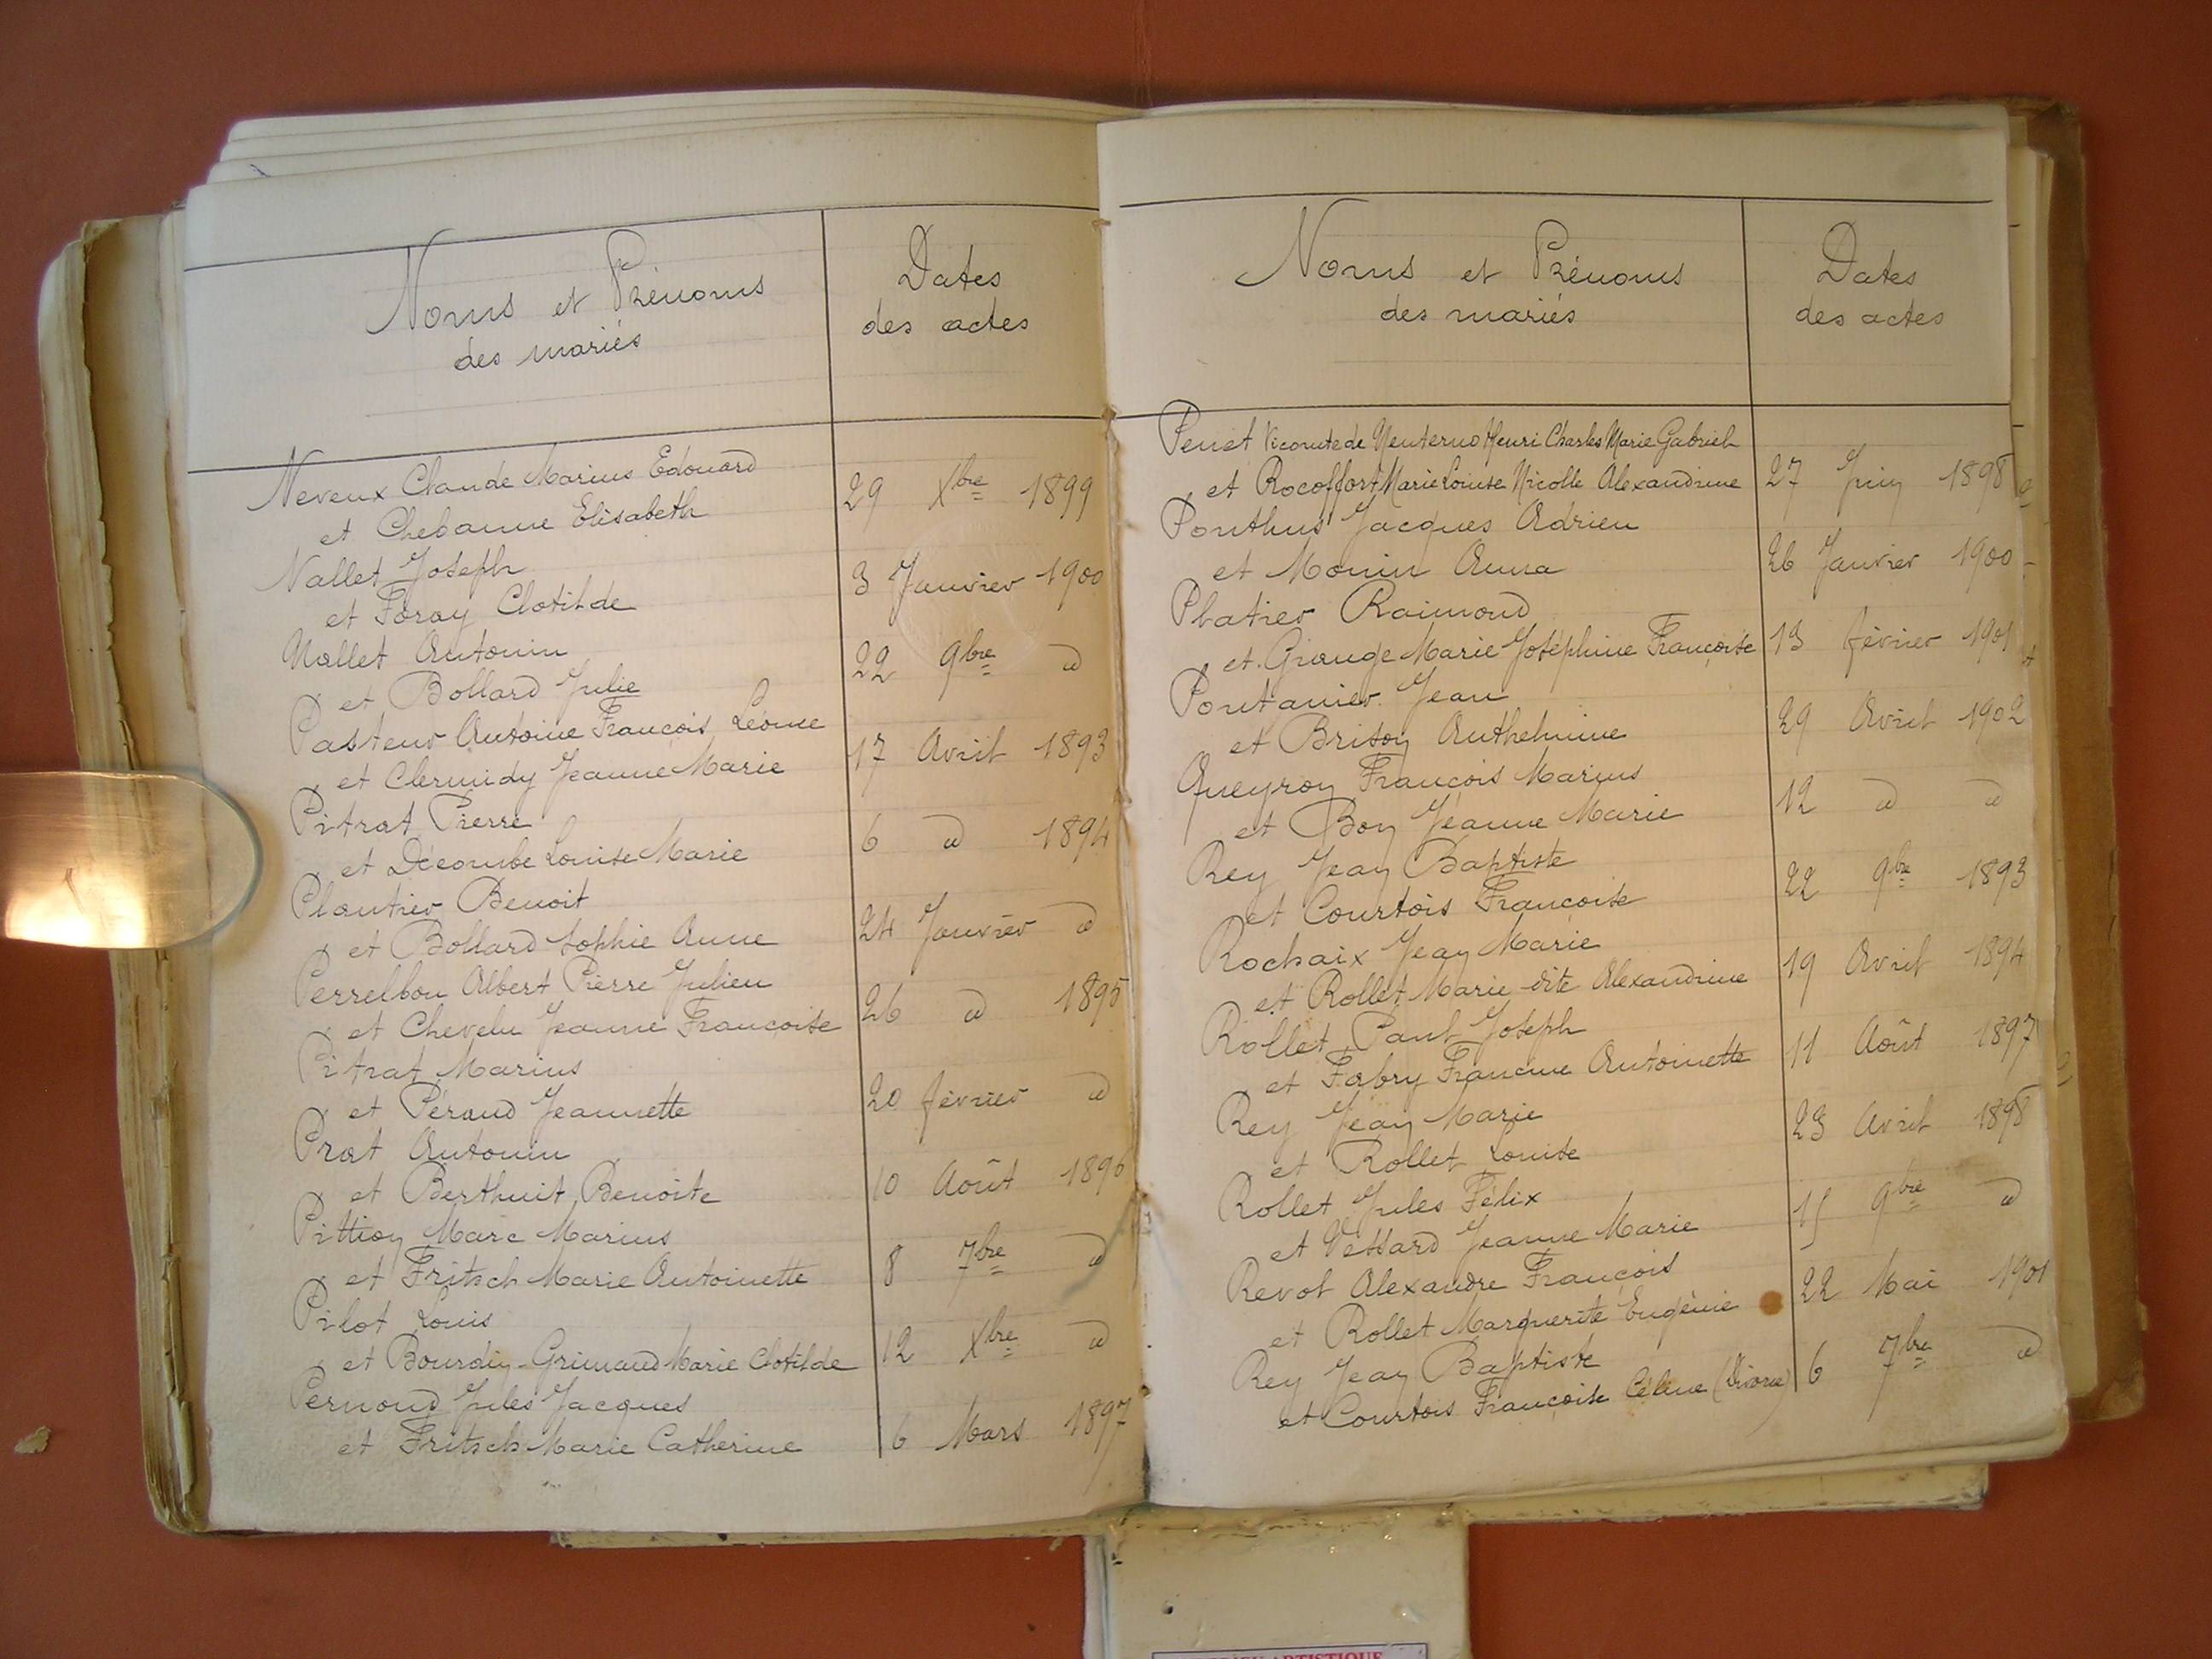 Noms et Prénoms
des mariés
Dates
des actes
Neveux Claude Marius Edouard
et Chebanne Elisabeth
29 Xbre 1899
Nallet Joseph
et Foray Clotilde
3 Janvier 1900
Nallet Antonin
et Bollard Julie
22 9bre d
Pasteur Antoine François Léonce
et Clermidy Jeanne Marie
17 Avril 1893
Pitrat Pierre
et Décombe Louise Marie
6 d 1894
Plantier Benoit
et Bollard Sophie Anne
24 Janvier d
Perrelbon Albert Pierre Julien
et Chevelu Jeanne Françoise
26 d 1895
Pitrat Marius
et Péraud Jeannette
20 février d
Prat Antonin
et Berthuit Benoite
10 Août 1896
Pittion Marc Marius
et Fritsch Marie Antoinette
8 7bre d
Pilot Louis
et Bourdin-Grimaud Marie Clotilde
12 Xbre d
Pernoud Jules Jacques
et Fritsch Marie Catherine
6 Mars 1897
Noms et Prénoms
des mariés
Dates
des actes
Penet Vicomte de Monterno Henri Charles Marie Gabriel
et Rocoffort Marie Louise Nicolle Alexandrine
27 Juin 1898
Ponthus Jacques Adrien
et Monin Anna
26 Janvier 1900
Platier Raimond
et Grange Marie Joséphine Françoise
13 février 1901
Pontanier Jean
et Brison Anthelmine
29 Avril 1902
Queyron François Marius
et Bon Jeanne Marie
12 d d
Rey Jean Baptiste
et Courtois Françoise
22 9bre 1893
Rochaix Jean Marie
et Rollet Marie dite Alexandrine
19 Avril 1894
Rollet Paul Joseph
et Fabry Francine Antoinette
11 Août 1897
Rey Jean Marie
et Rollet Louise
23 Avril 1898
Rollet Jules Félix
et Vessard Jeanne Marie
15 9bre d
Revol Alexandre François
et Rollet Marguerite Eugénie
22 Mai 1901
Rey Jean Baptiste
et Courtois Françoise Céline (Divorce)
6 7bre d
ARTISTIQUE